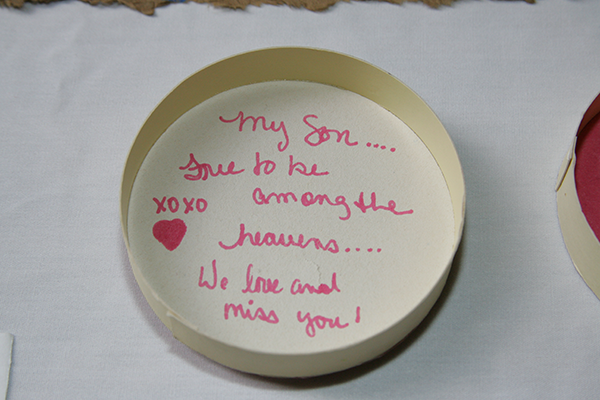 My Son....
free to be
XOXO among the
heavens....
We love and
miss you!